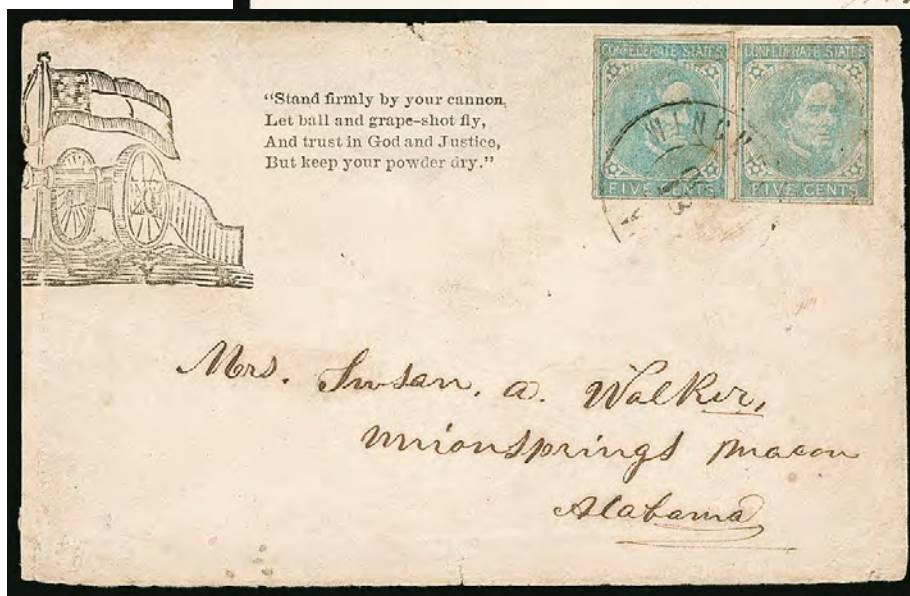 "Stand firmly by your cannon,
Let ball and grape-shot fly,
And trust in God and Justice,
But keep your powder dry."
CONFEDERATE STATES
FIVE CENTS
CONFEDERATE STATES
FIVE CENTS
WINCH
Mrs. Susan, a. Walker,
Unionsprings Macon
Alabama